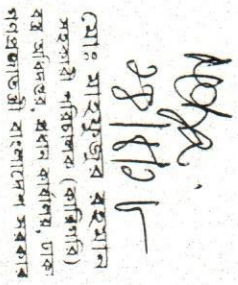 মোঃ মাহফুজুর রহমান
সহকারী পরিচালক (কারিগরি)
বস্ত্র অধিদপ্তর, প্রধান কার্যালয়, ঢাকা
গণপ্রজাতন্ত্রী বাংলাদেশ সরকার